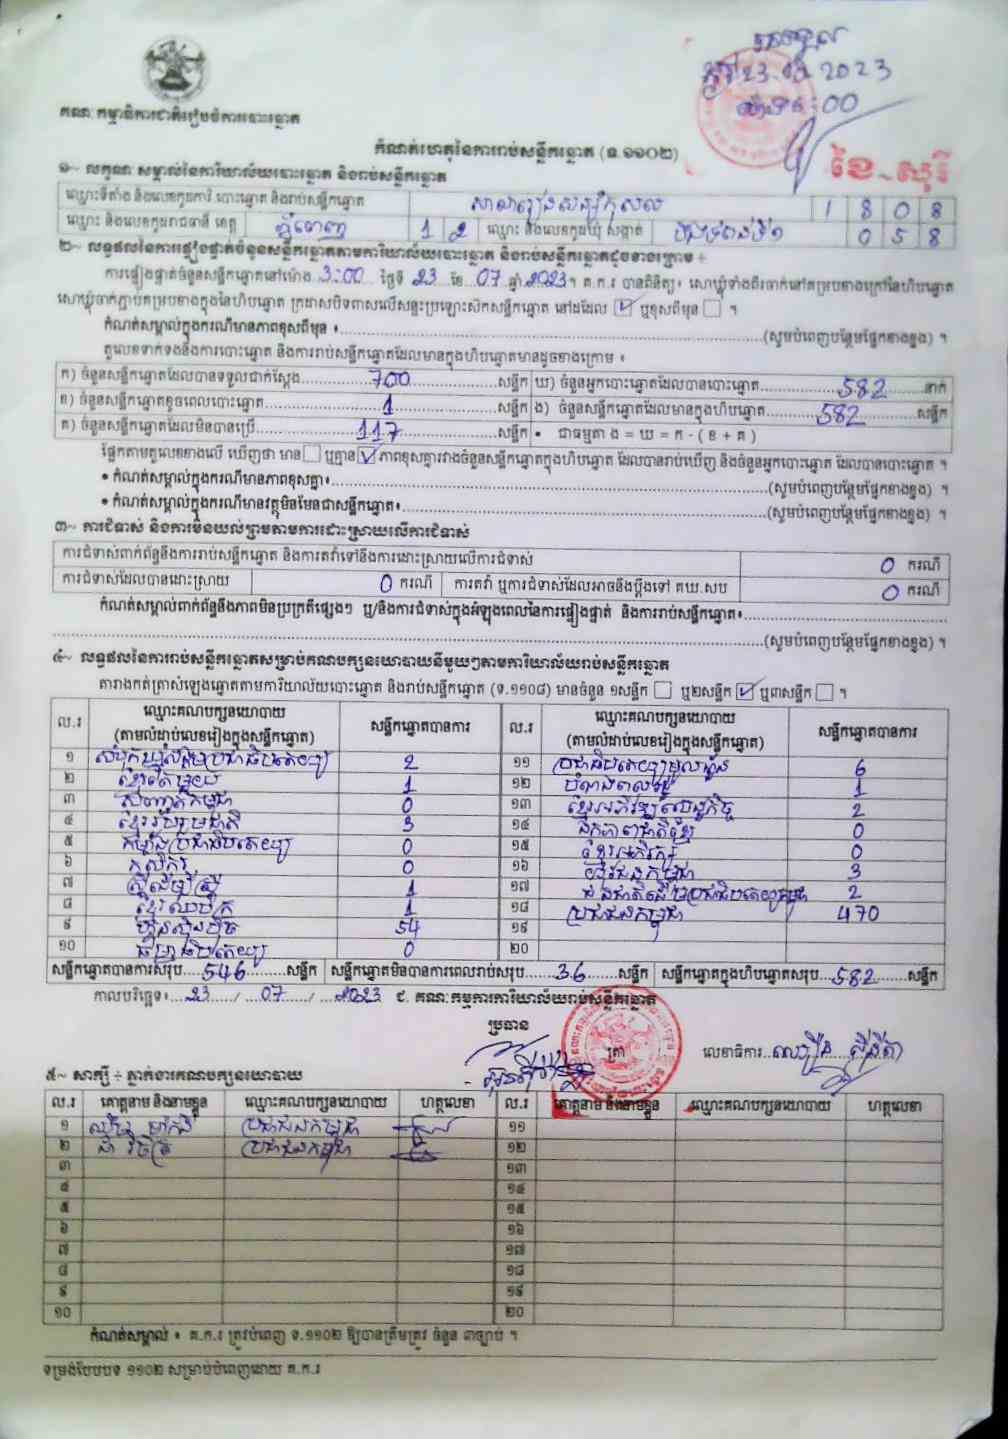 គណៈកម្មាធិការជាតិរៀបចំការបោះឆ្នោត
23.07.2023
:00
កំណត់ហេតុនៃការរាប់សន្លឹកឆ្នោត (ទ.១១០២)
១~ លក្ខណៈសម្គាល់នៃការិយាល័យបោះឆ្នោត និងរាប់សន្លឹកឆ្នោត
ឈ្មោះទីតាំង និងលេខកូដការិ.បោះឆ្នោត និងរាប់សន្លឹកឆ្នោត 1 8 0 8
ឈ្មោះ និងលេខកូដរាជធានី ខេត្ត ភ្នំពេញ 1 2 ឈ្មោះ និងលេខកូដឃុំ សង្កាត់ 0 5 8
២~ លទ្ធផលនៃការផ្ទៀងផ្ទាត់ចំនួនសន្លឹកឆ្នោតតាមការិយាល័យបោះឆ្នោត និងរាប់សន្លឹកឆ្នោតដូចខាងក្រោម ÷
ការផ្ទៀងផ្ទាត់ចំនួនសន្លឹកឆ្នោតនៅម៉ោង 3:00 ថ្ងៃទី 23 ខែ 07 ឆ្នាំ 2023។ គ.ក.រ បានពិនិត្យ៖ សោឃ្លុំទាំងពីរចាក់នៅគម្របខាងក្រៅនៃហិបឆ្នោត
សោឃ្លុំចាក់ភ្ជាប់គម្របខាងក្នុងនៃហិបឆ្នោត ក្រដាសបិទពាសលើសន្ទះប្រឡោះសិកសន្លឹកឆ្នោត នៅដដែល ☑ ឬខុសពីមុន ☐ ។
កំណត់សម្គាល់ក្នុងករណីមានភាពខុសពីមុន ៖ (សូមបំពេញបន្ថែមផ្នែកខាងខ្នង) ។
តួលេខទាក់ទងនឹងការបោះឆ្នោត និងការរាប់សន្លឹកឆ្នោតដែលមានក្នុងហិបឆ្នោតមានដូចខាងក្រោម ៖
ក) ចំនួនសន្លឹកឆ្នោតដែលបានទទួលជាក់ស្តែង 700 សន្លឹក ឃ) ចំនួនអ្នកបោះឆ្នោតដែលបានបោះឆ្នោត 582 នាក់
ខ) ចំនួនសន្លឹកឆ្នោតខូចពេលបោះឆ្នោត 1 សន្លឹក ង) ចំនួនសន្លឹកឆ្នោតដែលមានក្នុងហិបឆ្នោត 582 សន្លឹក
គ) ចំនួនសន្លឹកឆ្នោតដែលមិនបានប្រើ 117 សន្លឹក • ជាធម្មតា ង = ឃ = ក - ( ខ + គ )
ផ្អែកតាមតួលេខខាងលើ ឃើញថា មាន ☐ ឬគ្មាន ☑ ភាពខុសគ្នារវាងចំនួនសន្លឹកឆ្នោតក្នុងហិបឆ្នោត ដែលបានរាប់ឃើញ និងចំនួនអ្នកបោះឆ្នោត ដែលបានបោះឆ្នោត ។
• កំណត់សម្គាល់ក្នុងករណីមានភាពខុសគ្នា៖ (សូមបំពេញបន្ថែមផ្នែកខាងខ្នង) ។
• កំណត់សម្គាល់ក្នុងករណីមានវត្ថុមិនមែនជាសន្លឹកឆ្នោត៖ (សូមបំពេញបន្ថែមផ្នែកខាងខ្នង) ។
៣~ ការជំទាស់ និងការមិនយល់ព្រមតាមការដោះស្រាយលើការជំទាស់
ការជំទាស់ពាក់ព័ន្ធនឹងការរាប់សន្លឹកឆ្នោត និងការតវ៉ាទៅនឹងការដោះស្រាយលើការជំទាស់ 0 ករណី
ការជំទាស់ដែលបានដោះស្រាយ 0 ករណី ការតវ៉ា ឬការជំទាស់ដែលអាចនឹងប្តឹងទៅ គឃ.សប 0 ករណី
កំណត់សម្គាល់ពាក់ព័ន្ធនឹងភាពមិនប្រក្រតីផ្សេងៗ ឬ/និងការជំទាស់ក្នុងអំឡុងពេលនៃការផ្ទៀងផ្ទាត់ និងការរាប់សន្លឹកឆ្នោត៖
(សូមបំពេញបន្ថែមផ្នែកខាងខ្នង) ។
៤~ លទ្ធផលនៃការរាប់សន្លឹកឆ្នោតសម្រាប់គណបក្សនយោបាយនីមួយៗតាមការិយាល័យរាប់សន្លឹកឆ្នោត
តារាងកត់ត្រាសំឡេងឆ្នោតតាមការិយាល័យបោះឆ្នោត និងរាប់សន្លឹកឆ្នោត (ទ.១១០៨) មានចំនួន ១សន្លឹក ☐ ឬ២សន្លឹក ☑ ឬ៣សន្លឹក ☐ ។
ល.រ ឈ្មោះគណបក្សនយោបាយ (តាមលំដាប់លេខរៀងក្នុងសន្លឹកឆ្នោត) សន្លឹកឆ្នោតបានការ ល.រ ឈ្មោះគណបក្សនយោបាយ (តាមលំដាប់លេខរៀងក្នុងសន្លឹកឆ្នោត) សន្លឹកឆ្នោតបានការ
១ សំបុកឃ្មុំសង្គមប្រជាធិបតេយ្យ 2 ១១ ប្រជាធិបតេយ្យមូលដ្ឋាន 6
២ ខ្មែរតែមួយ 1 ១២ 1
៣ សញ្ជាតិកម្ពុជា 0 ១៣ ខ្មែរអភិវឌ្ឍន៍សេដ្ឋកិច្ច 2
៤ ខ្មែររួបរួមជាតិ 3 ១៤ ឯកភាពជាតិខ្មែរ 0
៥ កម្លាំងប្រជាធិបតេយ្យ 0 ១៥ ខ្មែរអភិរក្ស 0
៦ កសិករ 0 ១៦ យុវជនកម្ពុជា 3
៧ ស្ត្រីដើម្បីស្ត្រី 1 ១៧ 2
៨ ខ្មែរឈប់ក្រ 1 ១៨ ប្រជាជនកម្ពុជា 470
៩ ហ្វ៊ុនស៊ិនប៉ិច 54 ១៩
១០ ធម្មាធិបតេយ្យ 0 ២០
សន្លឹកឆ្នោតបានការសរុប 546 សន្លឹក សន្លឹកឆ្នោតមិនបានការពេលរាប់សរុប 36 សន្លឹក សន្លឹកឆ្នោតក្នុងហិបឆ្នោតសរុប 582 សន្លឹក
កាលបរិច្ឆេទ៖ 23 / 07 / 2023 ជ. គណៈកម្មការការិយាល័យរាប់សន្លឹកឆ្នោត
ប្រធាន
ត្រា លេខាធិការ
៥~ សាក្សី ÷ ភ្នាក់ងារគណបក្សនយោបាយ
ល.រ គោត្តនាម និងនាមខ្លួន ឈ្មោះគណបក្សនយោបាយ ហត្ថលេខា ល.រ គោត្តនាម និងនាមខ្លួន ឈ្មោះគណបក្សនយោបាយ ហត្ថលេខា
១ ប្រជាជនកម្ពុជា ១១
២ ជា វិចិត្រ ប្រជាជនកម្ពុជា ១២
៣ ១៣
៤ ១៤
៥ ១៥
៦ ១៦
៧ ១៧
៨ ១៨
៩ ១៩
១០ ២០
កំណត់សម្គាល់ ៖ គ.ក.រ ត្រូវបំពេញ ទ.១១០២ ឱ្យបានត្រឹមត្រូវ ចំនួន ៣ច្បាប់ ។
ទម្រង់បែបបទ ១១០២ សម្រាប់បំពេញដោយ គ.ក.រ